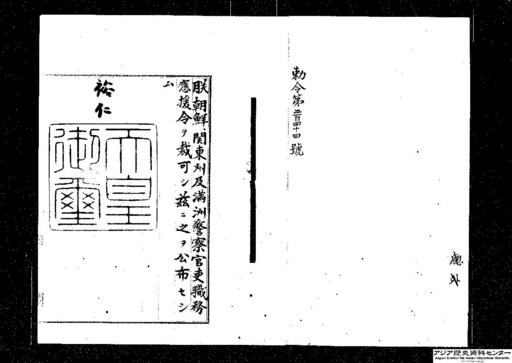 勅令第三百四十四號
朕朝鮮、關東州及滿洲警察官吏職務
應援令ヲ裁可シ茲ニ之ヲ公布セシ
ム
裕仁
天皇
御璽
アジア歴史資料センター
Japan Center for Asian Historical Records